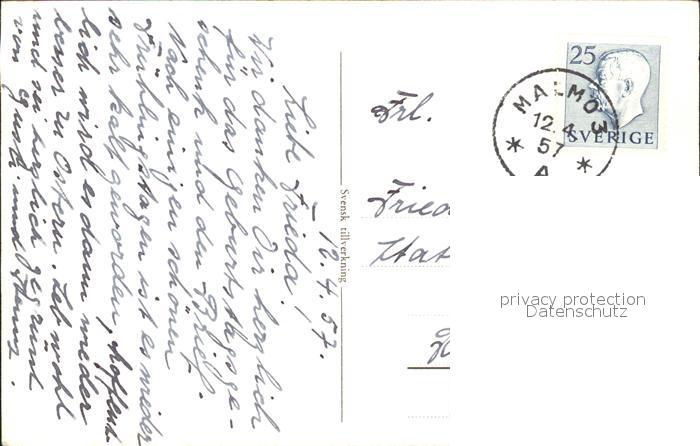 12.4.57.
Liebe Frieda!
Wir danken Dir herzlich
für das Geburtstagsge-
schenk und den Brief.
Nach einigen schönen
Frühlingstagen ist es wieder
sehr kalt geworden, hoffent-
lich wird es dann wieder
besser zu Ostern. Leb wohl
und sei herzlich gegrüsst
von Gusti und
Svensk tillverkning
Frl.
25
SVERIGE
MALMÖ 3
12.4.
57
A
privacy protection
Datenschutz